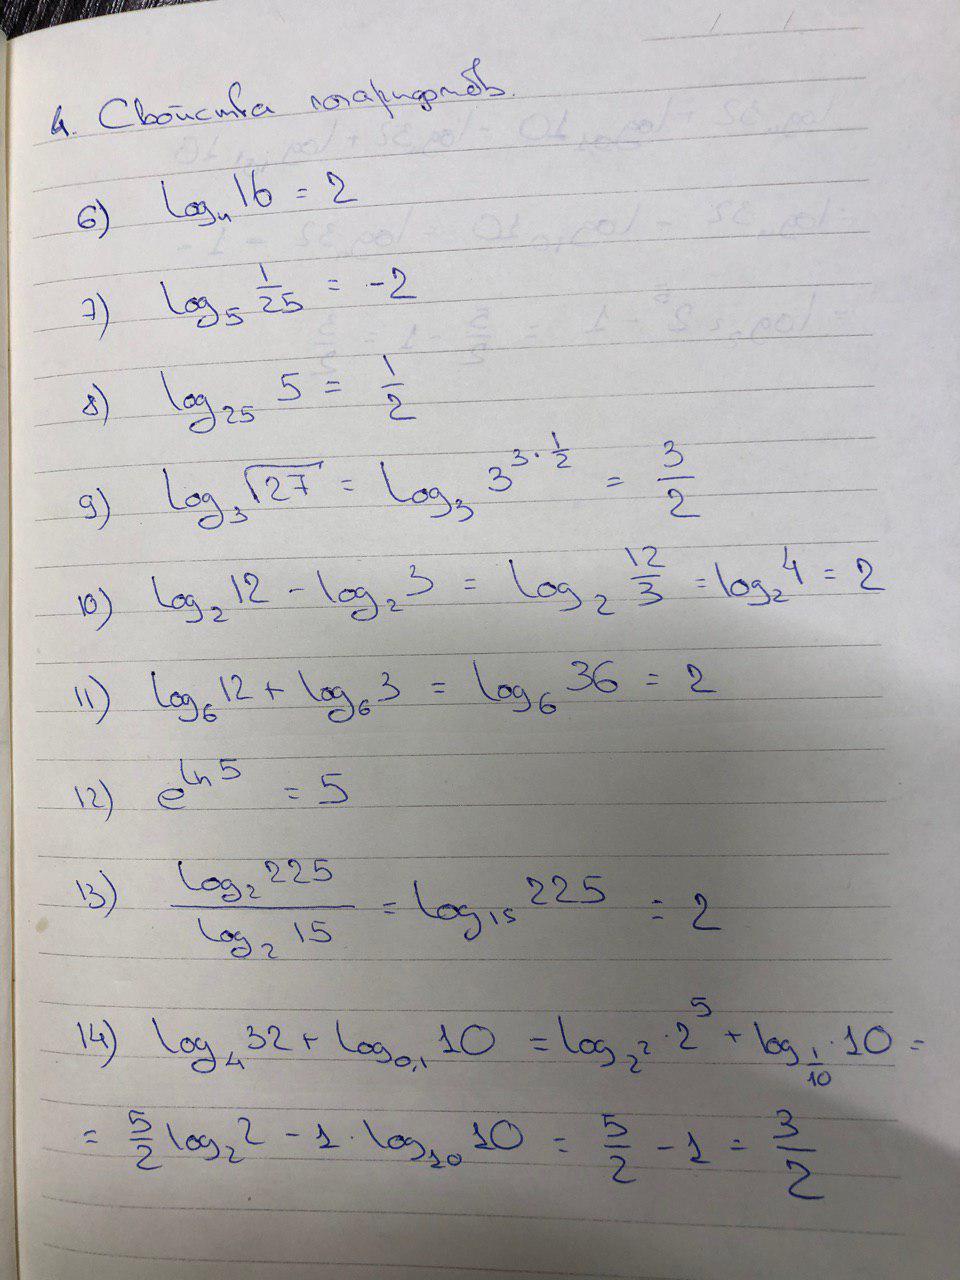 4. Свойства логарифмов.
6) log₄ 16 = 2
7) log₅ 1/25 = -2
8) log₂₅ 5 = 1/2
9) log₃ √27 = log₃ 3^(3·1/2) = 3/2
10) log₂ 12 - log₂ 3 = log₂ 12/3 = log₂ 4 = 2
11) log₆ 12 + log₆ 3 = log₆ 36 = 2
12) e^(ln 5) = 5
13) log₂ 225 / log₂ 15 = log₁₅ 225 = 2
14) log₄ 32 + log₀,₁ 10 = log_(2²) · 2⁵ + log_(1/10) · 10 =
= 5/2 log₂ 2 - 1 · log₁₀ 10 = 5/2 - 1 = 3/2